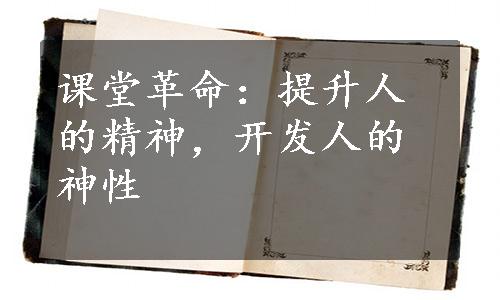 课堂革命：提升人
的精神，开发人的
神性